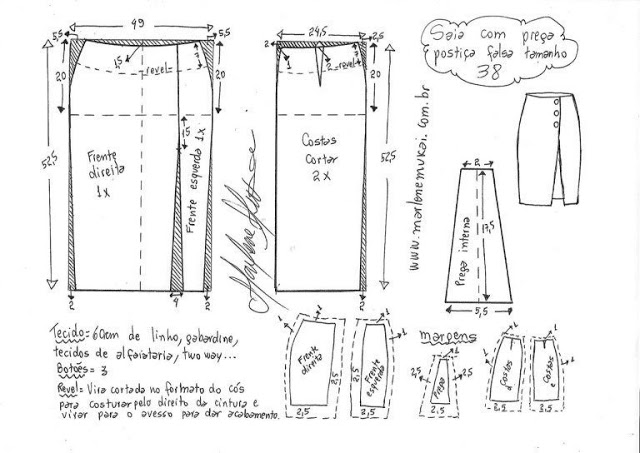 49
5,5
5,5
20
20
52,5
1,5
revel
3
15
Frente
direita
1x
Frente esquerda 1x
4
2
2
24,5
2
2,5
1
2
3
revel
20
52,5
Costas
Cortar
2x
2
Saia com prega
postiça falsa tamanho
38
www.marlenemukai.com.br
2
17,5
Prega interna
5,5
Tecido= 60cm de linho, gabardine,
tecidos de alfaiataria, two way...
Botões= 3
Revel= Vira cortada no formato do cós
para costurar pelo direito da cintura e
virar para o avesso para dar acabamento.
margens
1
1
Frente
direita
2,5
2,5
1
1
Frente
esquerda
2,5
1
Prega
2,5
2,5
2,5
1
1
Costas
d
2,5
1
1
Costas
e
2,5